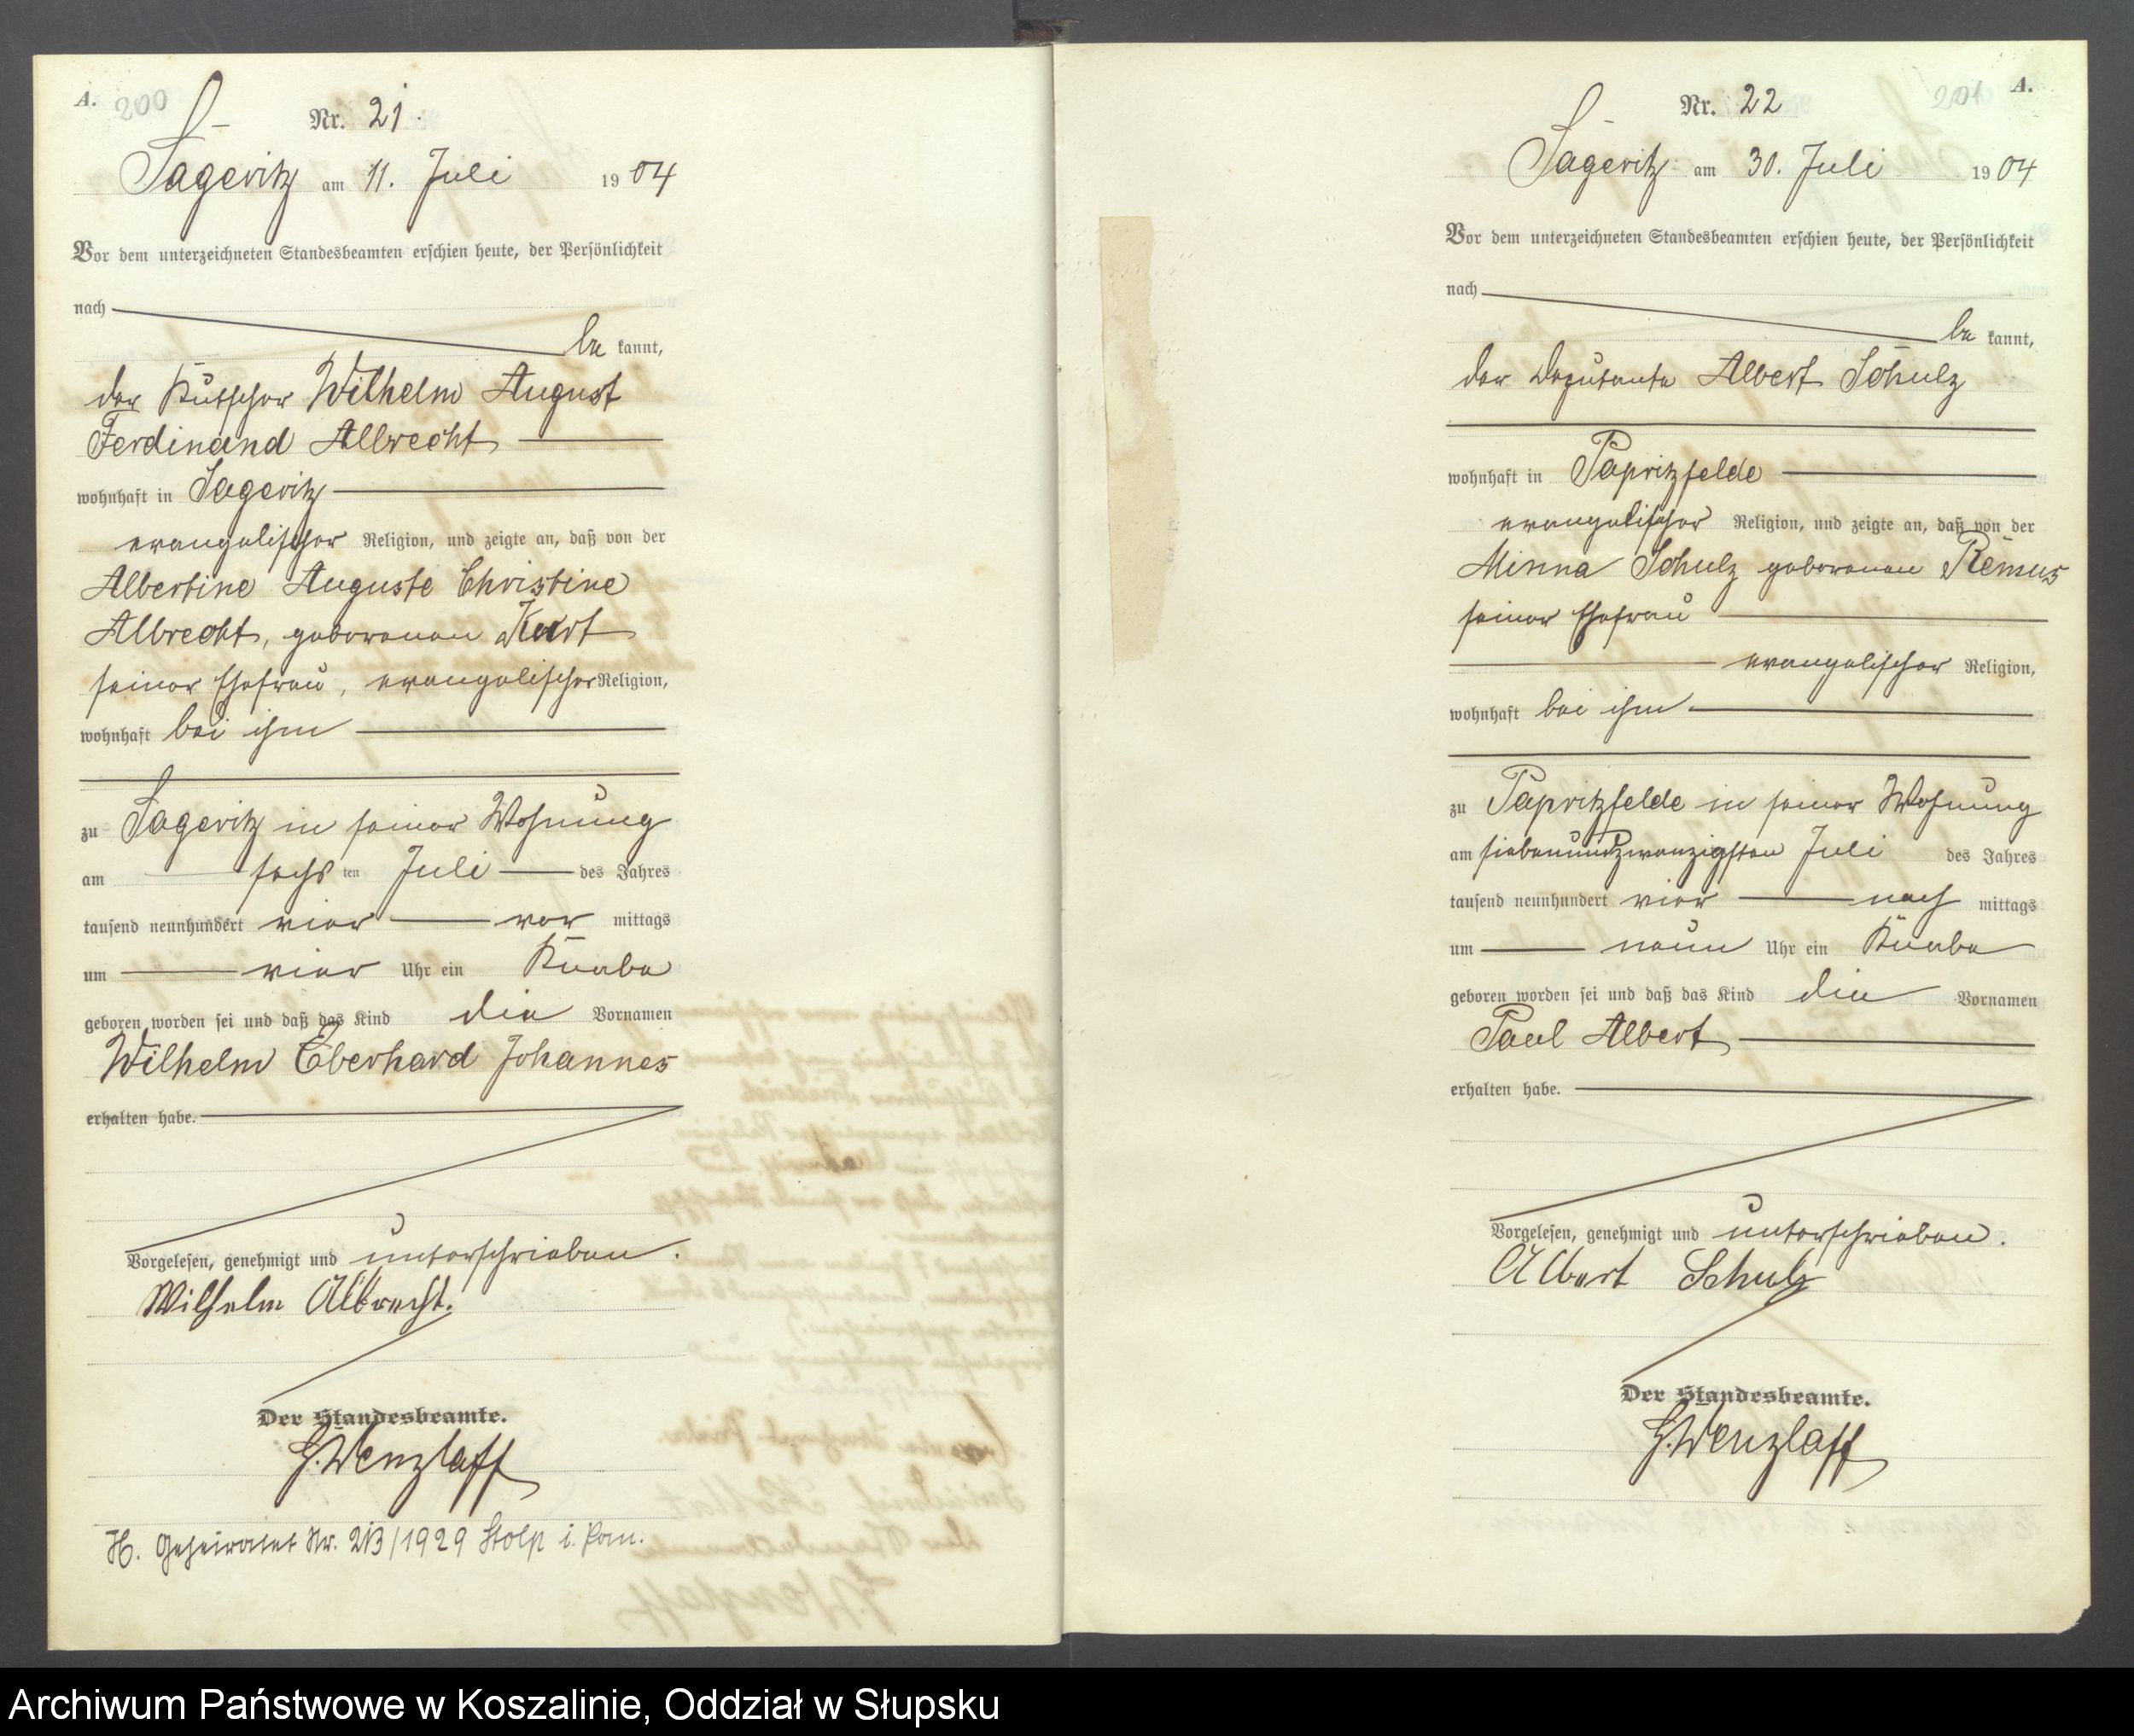 A. 200
Nr. 21.
Sageritz am 11. Juli 1904
Vor dem unterzeichneten Standesbeamten erschien heute, der Persönlichkeit
nach
be kannt,
der Kutscher Wilhelm August
Ferdinand Albrecht
wohnhaft in Sageritz
evangelischer Religion, und zeigte an, daß von der
Albertine Auguste Christine
Albrecht, geborenen
seiner Ehefrau, evangelischer Religion,
wohnhaft bei ihm
zu Sageritz in seiner Wohnung
am sechsten Juli des Jahres
tausend neunhundert vier vor mittags
um vier Uhr ein Knabe
geboren worden sei und daß das Kind die Vornamen
Wilhelm Eberhard Johannes
erhalten habe.
Vorgelesen, genehmigt und unterschrieben.
Wilhelm Albrecht.
Der Standesbeamte.
G. Wenzlaff
H. Geheiratet Nr. 213/1929 Stolp i. Pom.
201 A.
Nr. 22
Sageritz am 30. Juli 1904
Vor dem unterzeichneten Standesbeamten erschien heute, der Persönlichkeit
nach
be kannt,
der Deputante Albert Schulz
wohnhaft in Papritzfelde
evangelischer Religion, und zeigte an, daß von der
Minna Schulz geborenen Remus
seiner Ehefrau
evangelischer Religion,
wohnhaft bei ihm
zu Papritzfelde in seiner Wohnung
am siebenundzwanzigsten Juli des Jahres
tausend neunhundert vier nach mittags
um neun Uhr ein Knabe
geboren worden sei und daß das Kind die Vornamen
Paul Albert
erhalten habe.
Vorgelesen, genehmigt und unterschrieben.
Albert Schulz
Der Standesbeamte.
G. Wenzlaff
Archiwum Państwowe w Koszalinie, Oddział w Słupsku